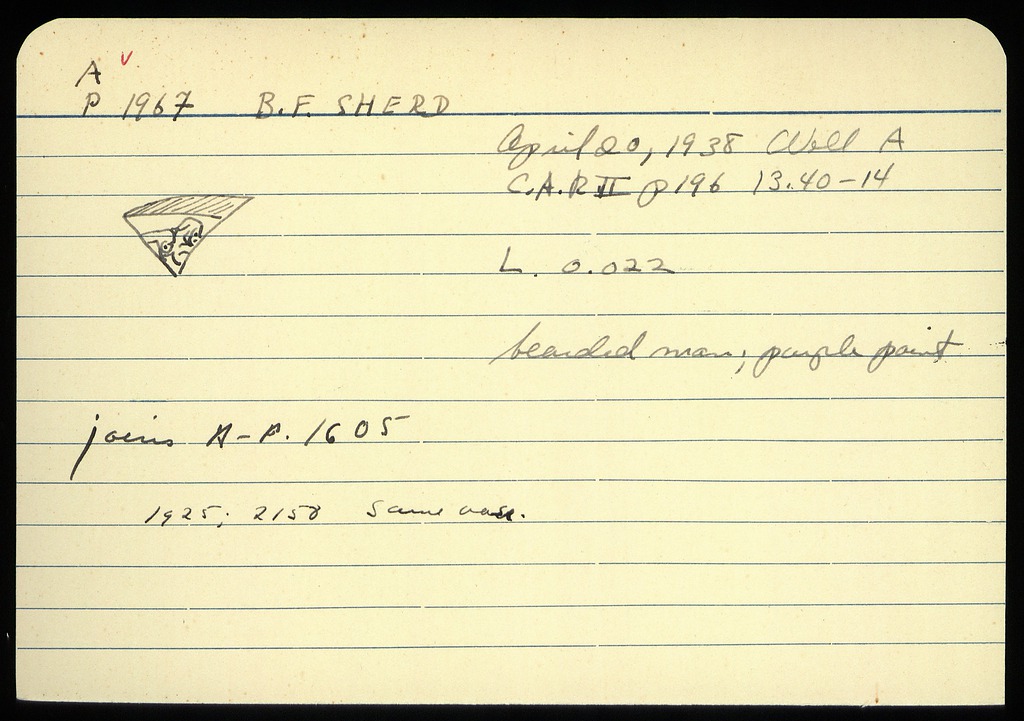 A v
P 1967 B.F. SHERD
April 20, 1938 Well A
C.A.R II p 196 13.40-14
L. 0.022
bearded man; purple paint
joins A-P. 1605
1925; 2158 same vase.